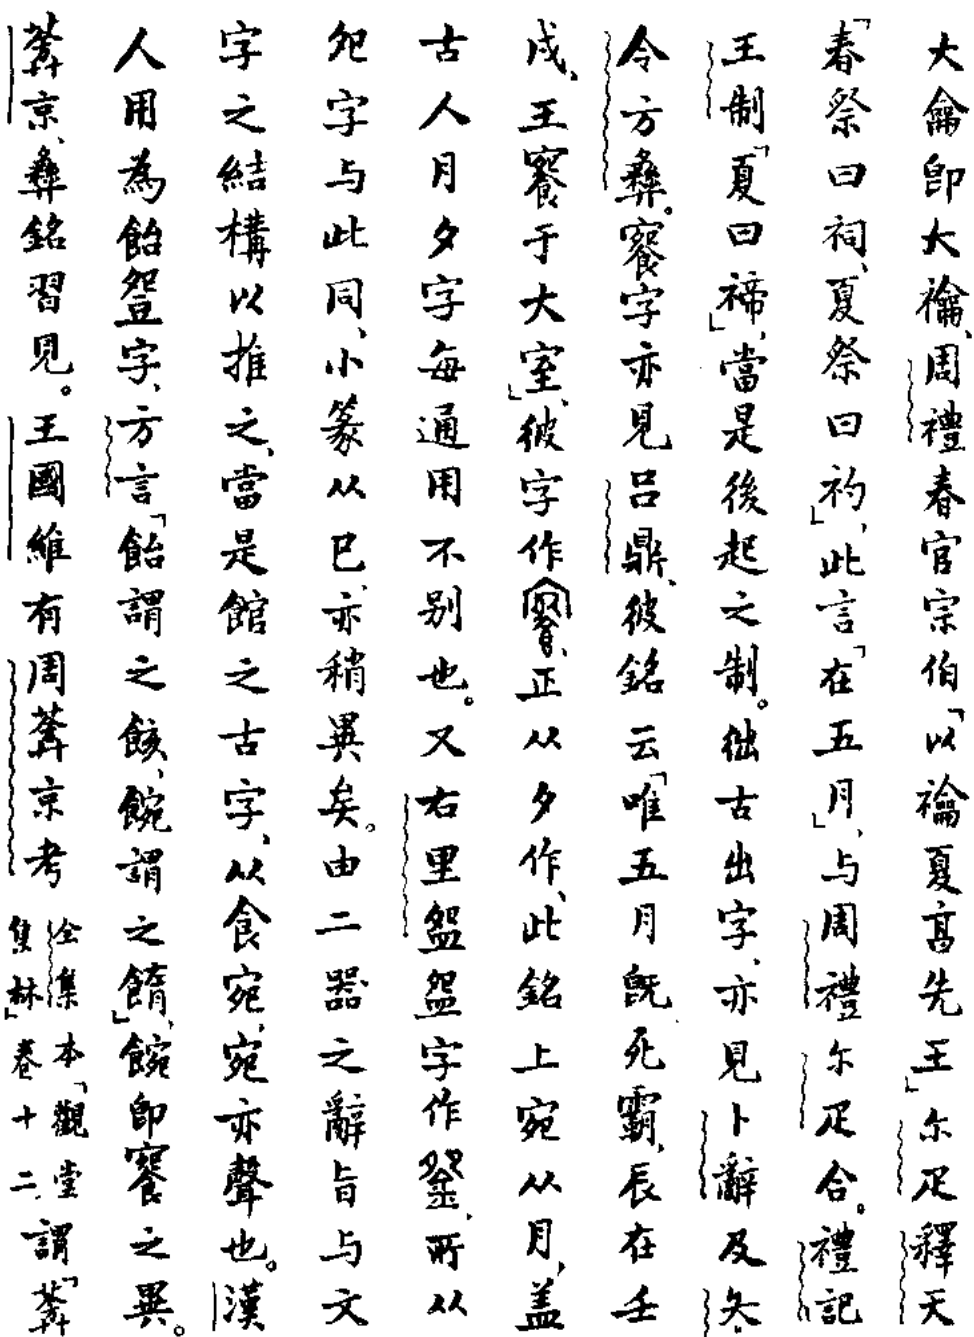 大龠即大禴、周禮春官宗伯「以禴夏享先王」尔疋釋天
「春祭曰祠、夏祭曰礿」、此言「在五月」、与周禮尔疋合。禮記
王制「夏曰禘」、當是後起之制。徃古出字、亦見卜辭及矢
令方彝。䬵字亦見呂鼎、彼銘云「唯五月旣死霸、辰在壬
戌、王䬵于大室」、彼字作、正从夕作、此銘上宛从月、蓋
古人月夕字每通用不别也。又右里盌盌字作、所从
夗字与此同、小篆从巳、亦稍異矣。由二器之辭旨与文
字之結構以推之、當是館之古字、从食宛、宛亦聲也。漢
人用為飴字、方言「飴謂之餩、䬼謂之䭉」、䬼即䬵之異。
䒶京、彝銘習見。王國維有周䒶京考全集本「觀堂集林」卷十二、謂「䒶